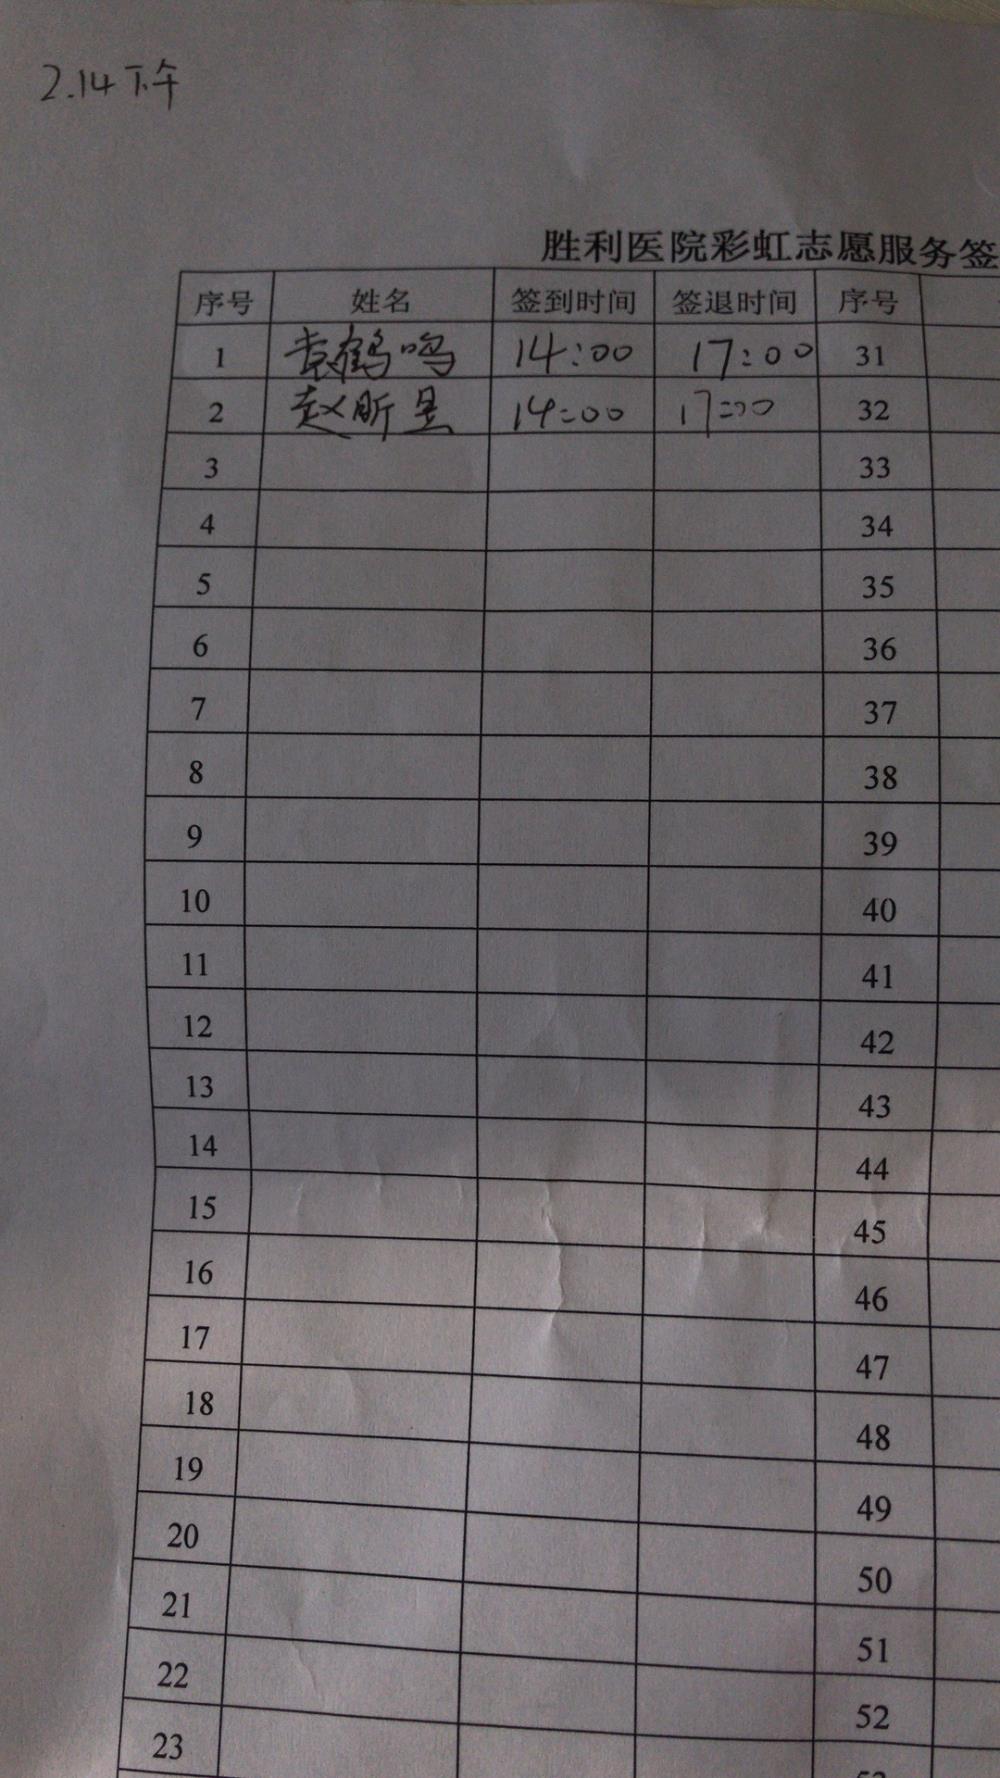 2.14 下午
胜利医院彩虹志愿服务签
序号 姓名 签到时间 签退时间 序号
1 袁鹤鸣 14:00 17:00 31
2 赵昕昱 14:00 17:00 32
3 33
4 34
5 35
6 36
7 37
8 38
9 39
10 40
11 41
12 42
13 43
14 44
15 45
16 46
17 47
18 48
19 49
20 50
21 51
22 52
23